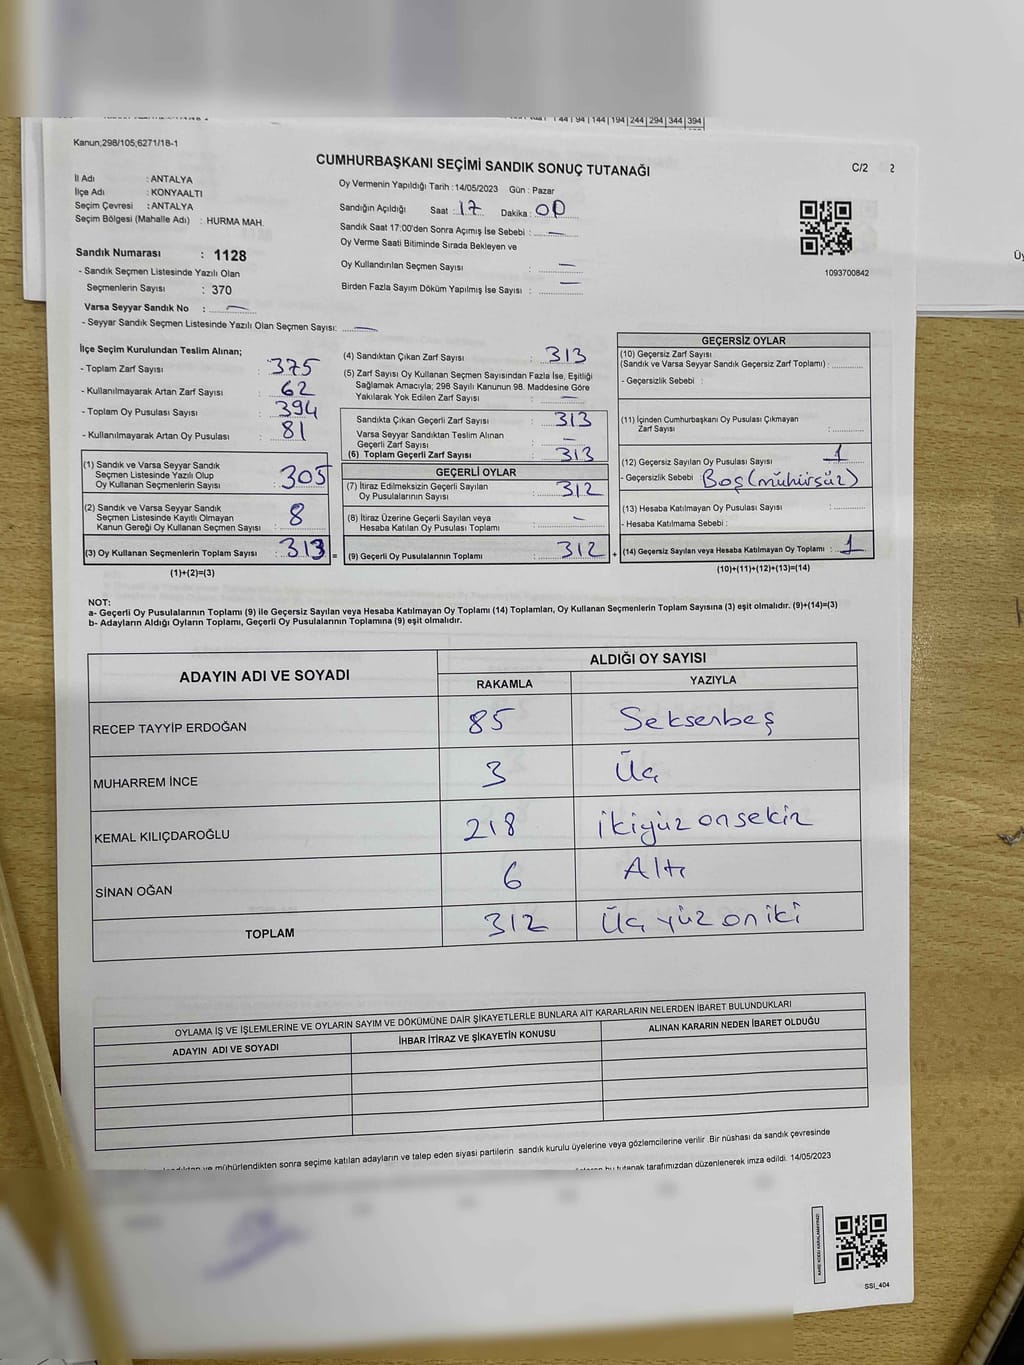 44 | 94 | 144 | 194 | 244 | 294 | 344 | 394
Kanun;298/105;6271/18-1
CUMHURBAŞKANI SEÇİMİ SANDIK SONUÇ TUTANAĞI
C/2 2
İl Adı : ANTALYA
İlçe Adı : KONYAALTI
Seçim Çevresi : ANTALYA
Seçim Bölgesi (Mahalle Adı) : HURMA MAH.
Oy Vermenin Yapıldığı Tarih : 14/05/2023 Gün : Pazar
Sandığın Açıldığı Saat : 17 Dakika : 00
Sandık Saat 17:00'den Sonra Açımış İse Sebebi : —
Oy Verme Saati Bitiminde Sırada Bekleyen ve
Oy Kullandırılan Seçmen Sayısı : —
Birden Fazla Sayım Döküm Yapılmış İse Sayısı : —
1093700842
Sandık Numarası : 1128
- Sandık Seçmen Listesinde Yazılı Olan
Seçmenlerin Sayısı : 370
Varsa Seyyar Sandık No : —
- Seyyar Sandık Seçmen Listesinde Yazılı Olan Seçmen Sayısı: —
İlçe Seçim Kurulundan Teslim Alınan;
- Toplam Zarf Sayısı : 375
- Kullanılmayarak Artan Zarf Sayısı : 62
- Toplam Oy Pusulası Sayısı : 394
- Kullanılmayarak Artan Oy Pusulası : 81
(1) Sandık ve Varsa Seyyar Sandık
Seçmen Listesinde Yazılı Olup
Oy Kullanan Seçmenlerin Sayısı : 305
(2) Sandık ve Varsa Seyyar Sandık
Seçmen Listesinde Kayıtlı Olmayan
Kanun Gereği Oy Kullanan Seçmen Sayısı : 8
(3) Oy Kullanan Seçmenlerin Toplam Sayısı : 313 =
(1)+(2)=(3)
(4) Sandıktan Çıkan Zarf Sayısı : 313
(5) Zarf Sayısı Oy Kullanan Seçmen Sayısından Fazla İse, Eşitliği
Sağlamak Amacıyla; 298 Sayılı Kanunun 98. Maddesine Göre
Yakılarak Yok Edilen Zarf Sayısı : —
Sandıkta Çıkan Geçerli Zarf Sayısı : 313
Varsa Seyyar Sandıktan Teslim Alınan
Geçerli Zarf Sayısı : —
(6) Toplam Geçerli Zarf Sayısı : 313
GEÇERLİ OYLAR
(7) İtiraz Edilmeksizin Geçerli Sayılan
Oy Pusulalarının Sayısı : 312
(8) İtiraz Üzerine Geçerli Sayılan veya
Hesaba Katılan Oy Pusulası Toplamı : -
(9) Geçerli Oy Pusulalarının Toplamı : 312 +
GEÇERSİZ OYLAR
(10) Geçersiz Zarf Sayısı
(Sandık ve Varsa Seyyar Sandık Geçersiz Zarf Toplamı) :
- Geçersizlik Sebebi :
(11) İçinden Cumhurbaşkanı Oy Pusulası Çıkmayan
Zarf Sayısı :
(12) Geçersiz Sayılan Oy Pusulası Sayısı : 1
- Geçersizlik Sebebi : Boş (mühürsüz)
(13) Hesaba Katılmayan Oy Pusulası Sayısı :
- Hesaba Katılmama Sebebi :
(14) Geçersiz Sayılan veya Hesaba Katılmayan Oy Toplamı : 1
(10)+(11)+(12)+(13)=(14)
NOT:
a- Geçerli Oy Pusulalarının Toplamı (9) ile Geçersiz Sayılan veya Hesaba Katılmayan Oy Toplamı (14) Toplamları, Oy Kullanan Seçmenlerin Toplam Sayısına (3) eşit olmalıdır. (9)+(14)=(3)
b- Adayların Aldığı Oyların Toplamı, Geçerli Oy Pusulalarının Toplamına (9) eşit olmalıdır.
ADAYIN ADI VE SOYADI
ALDIĞI OY SAYISI
RAKAMLA YAZIYLA
RECEP TAYYİP ERDOĞAN 85 Seksenbeş
MUHARREM İNCE 3 Üç
KEMAL KILIÇDAROĞLU 218 ikiyüz onsekiz
SİNAN OĞAN 6 Altı
TOPLAM 312 Üç yüz on iki
OYLAMA İŞ VE İŞLEMLERİNE VE OYLARIN SAYIM VE DÖKÜMÜNE DAİR ŞİKAYETLERLE BUNLARA AİT KARARLARIN NELERDEN İBARET BULUNDUKLARI
ADAYIN ADI VE SOYADI İHBAR İTİRAZ VE ŞİKAYETİN KONUSU ALINAN KARARIN NEDEN İBARET OLDUĞU
ve mühürlendikten sonra seçime katılan adayların ve talep eden siyasi partilerin sandık kurulu üyelerine veya gözlemcilerine verilir .Bir nüshası da sandık çevresinde
bu tutanak tarafımızdan düzenlenerek imza edildi. 14/05/2023
SSI_404